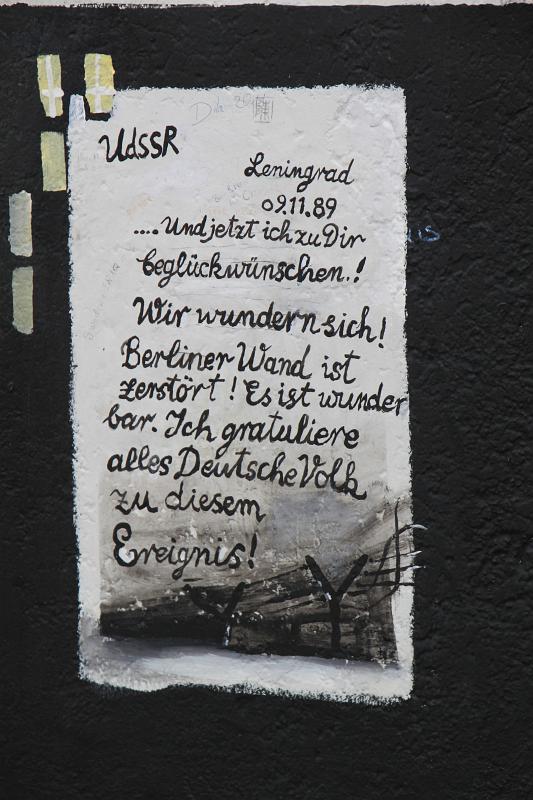 UdSSR
Leningrad
09.11.89
.... Und jetzt ich zu Dir
beglückwünschen.!
Wir wundern sich!
Berliner Wand ist
zerstört! Es ist wunder
bar. Ich gratuliere
alles Deutsche Volk
zu diesem
Ereignis!